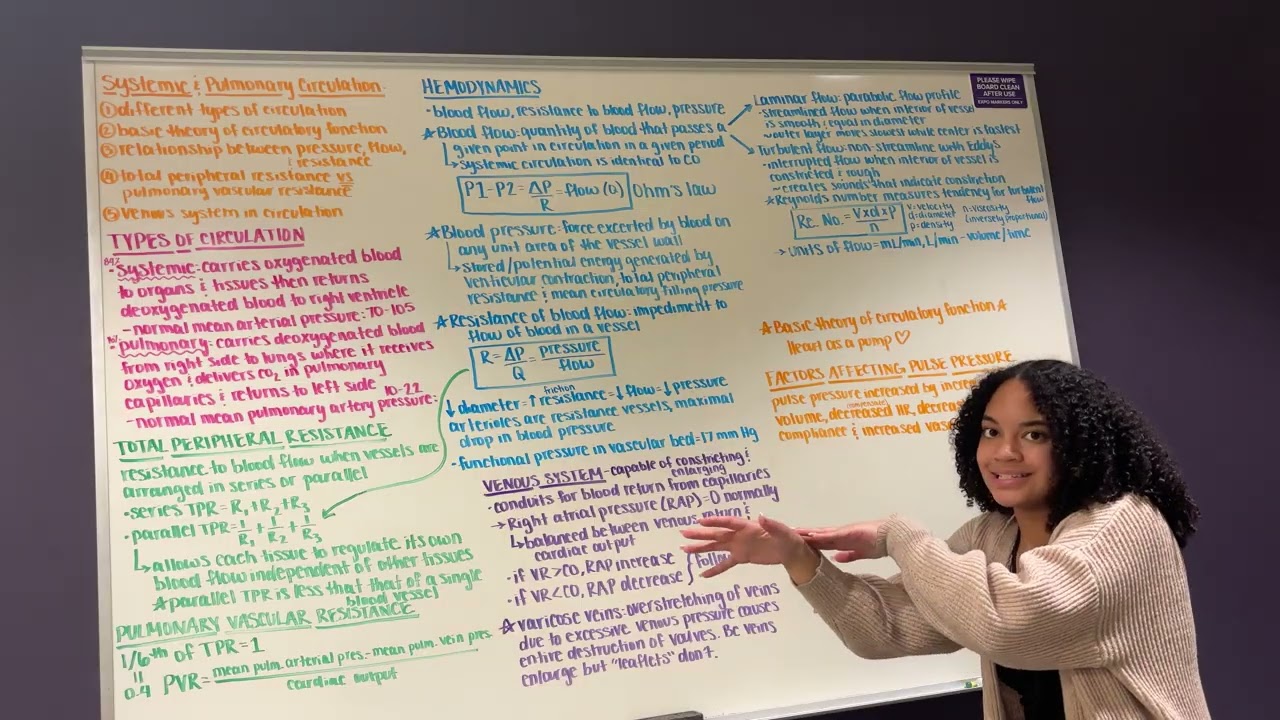 Systemic & Pulmonary Circulation
① different types of circulation
② basic theory of circulatory function
③ relationship between pressure, flow,
& resistance
④ total peripheral resistance vs
pulmonary vascular resistance
⑤ Venous system in circulation
TYPES OF CIRCULATION
84%
• Systemic: carries oxygenated blood
to organs & tissues then returns
deoxygenated blood to right ventricle
- normal mean arterial pressure: 70-105
• pulmonary: carries deoxygenated blood
from right side to lungs where it receives
oxygen & delivers CO2 in pulmonary
capillaries & returns to left side
- normal mean pulmonary artery pressure: 10-22
TOTAL PERIPHERAL RESISTANCE
resistance to blood flow when vessels are
arranged in series or parallel
• series TPR = R1 + R2 + R3
• parallel TPR = 1/R1 + 1/R2 + 1/R3
↳ allows each tissue to regulate its own
blood flow independent of other tissues
★ parallel TPR is less that that of a single
blood vessel
PULMONARY VASCULAR RESISTANCE
1/6th of TPR = 1
"
0.4 PVR = mean pulm. arterial pres. - mean pulm. vein pres.
cardiac output
HEMODYNAMICS
• blood flow, resistance to blood flow, pressure
★ Blood flow: quantity of blood that passes a
given point in circulation in a given period
↳ systemic circulation is identical to CO
P1 - P2 = ΔP/R = flow (Q) Ohm's law
★ Blood pressure: force excerted by blood on
any unit area of the vessel wall
↳ stored/potential energy generated by
ventricular contraction, total peripheral
resistance & mean circulatory filling pressure
★ Resistance of blood flow: impediment to
flow of blood in a vessel
R = ΔP/Q = pressure/flow
friction
↓ diameter = ↑ resistance = ↓ flow = ↓ pressure
arterioles are resistance vessels, maximal
drop in blood pressure
• functional pressure in vascular bed = 17 mm Hg
VENOUS SYSTEM - capable of constricting &
enlarging
• conduits for blood return from capillaries
→ Right atrial pressure (RAP) = 0 normally
↳ balanced between venous return &
cardiac output
• if VR > CO, RAP increase
• if VR < CO, RAP decrease } follow
★ varicose veins: overstretching of veins
due to excessive venous pressure causes
entire destruction of valves. Bc veins
enlarge but "leaflets" don't.
Laminar flow: parabolic flow profile
• streamlined flow when interior of vessel
is smooth & equal in diameter
~ outer layer moves slowest while center is fastest
Turbulent flow: non-streamline with Eddys
• interrupted flow when interior of vessel is
constricted & rough
~ creates sounds that indicate constriction
★ Reynolds number measures tendency for turbulent
flow
Re. No. = v x d x p / n
v = velocity
d = diameter
p = density
n = viscosity
(inversely proportional)
→ units of flow = mL/min, L/min - volume/time
★ Basic theory of circulatory function ★
Heart as a pump ♡
FACTORS AFFECTING PULSE PRESSURE
pulse pressure increased by
volume, decreased HR,
compliance & increased
PLEASE WIPE
BOARD CLEAN
AFTER USE
EXPO MARKERS ONLY